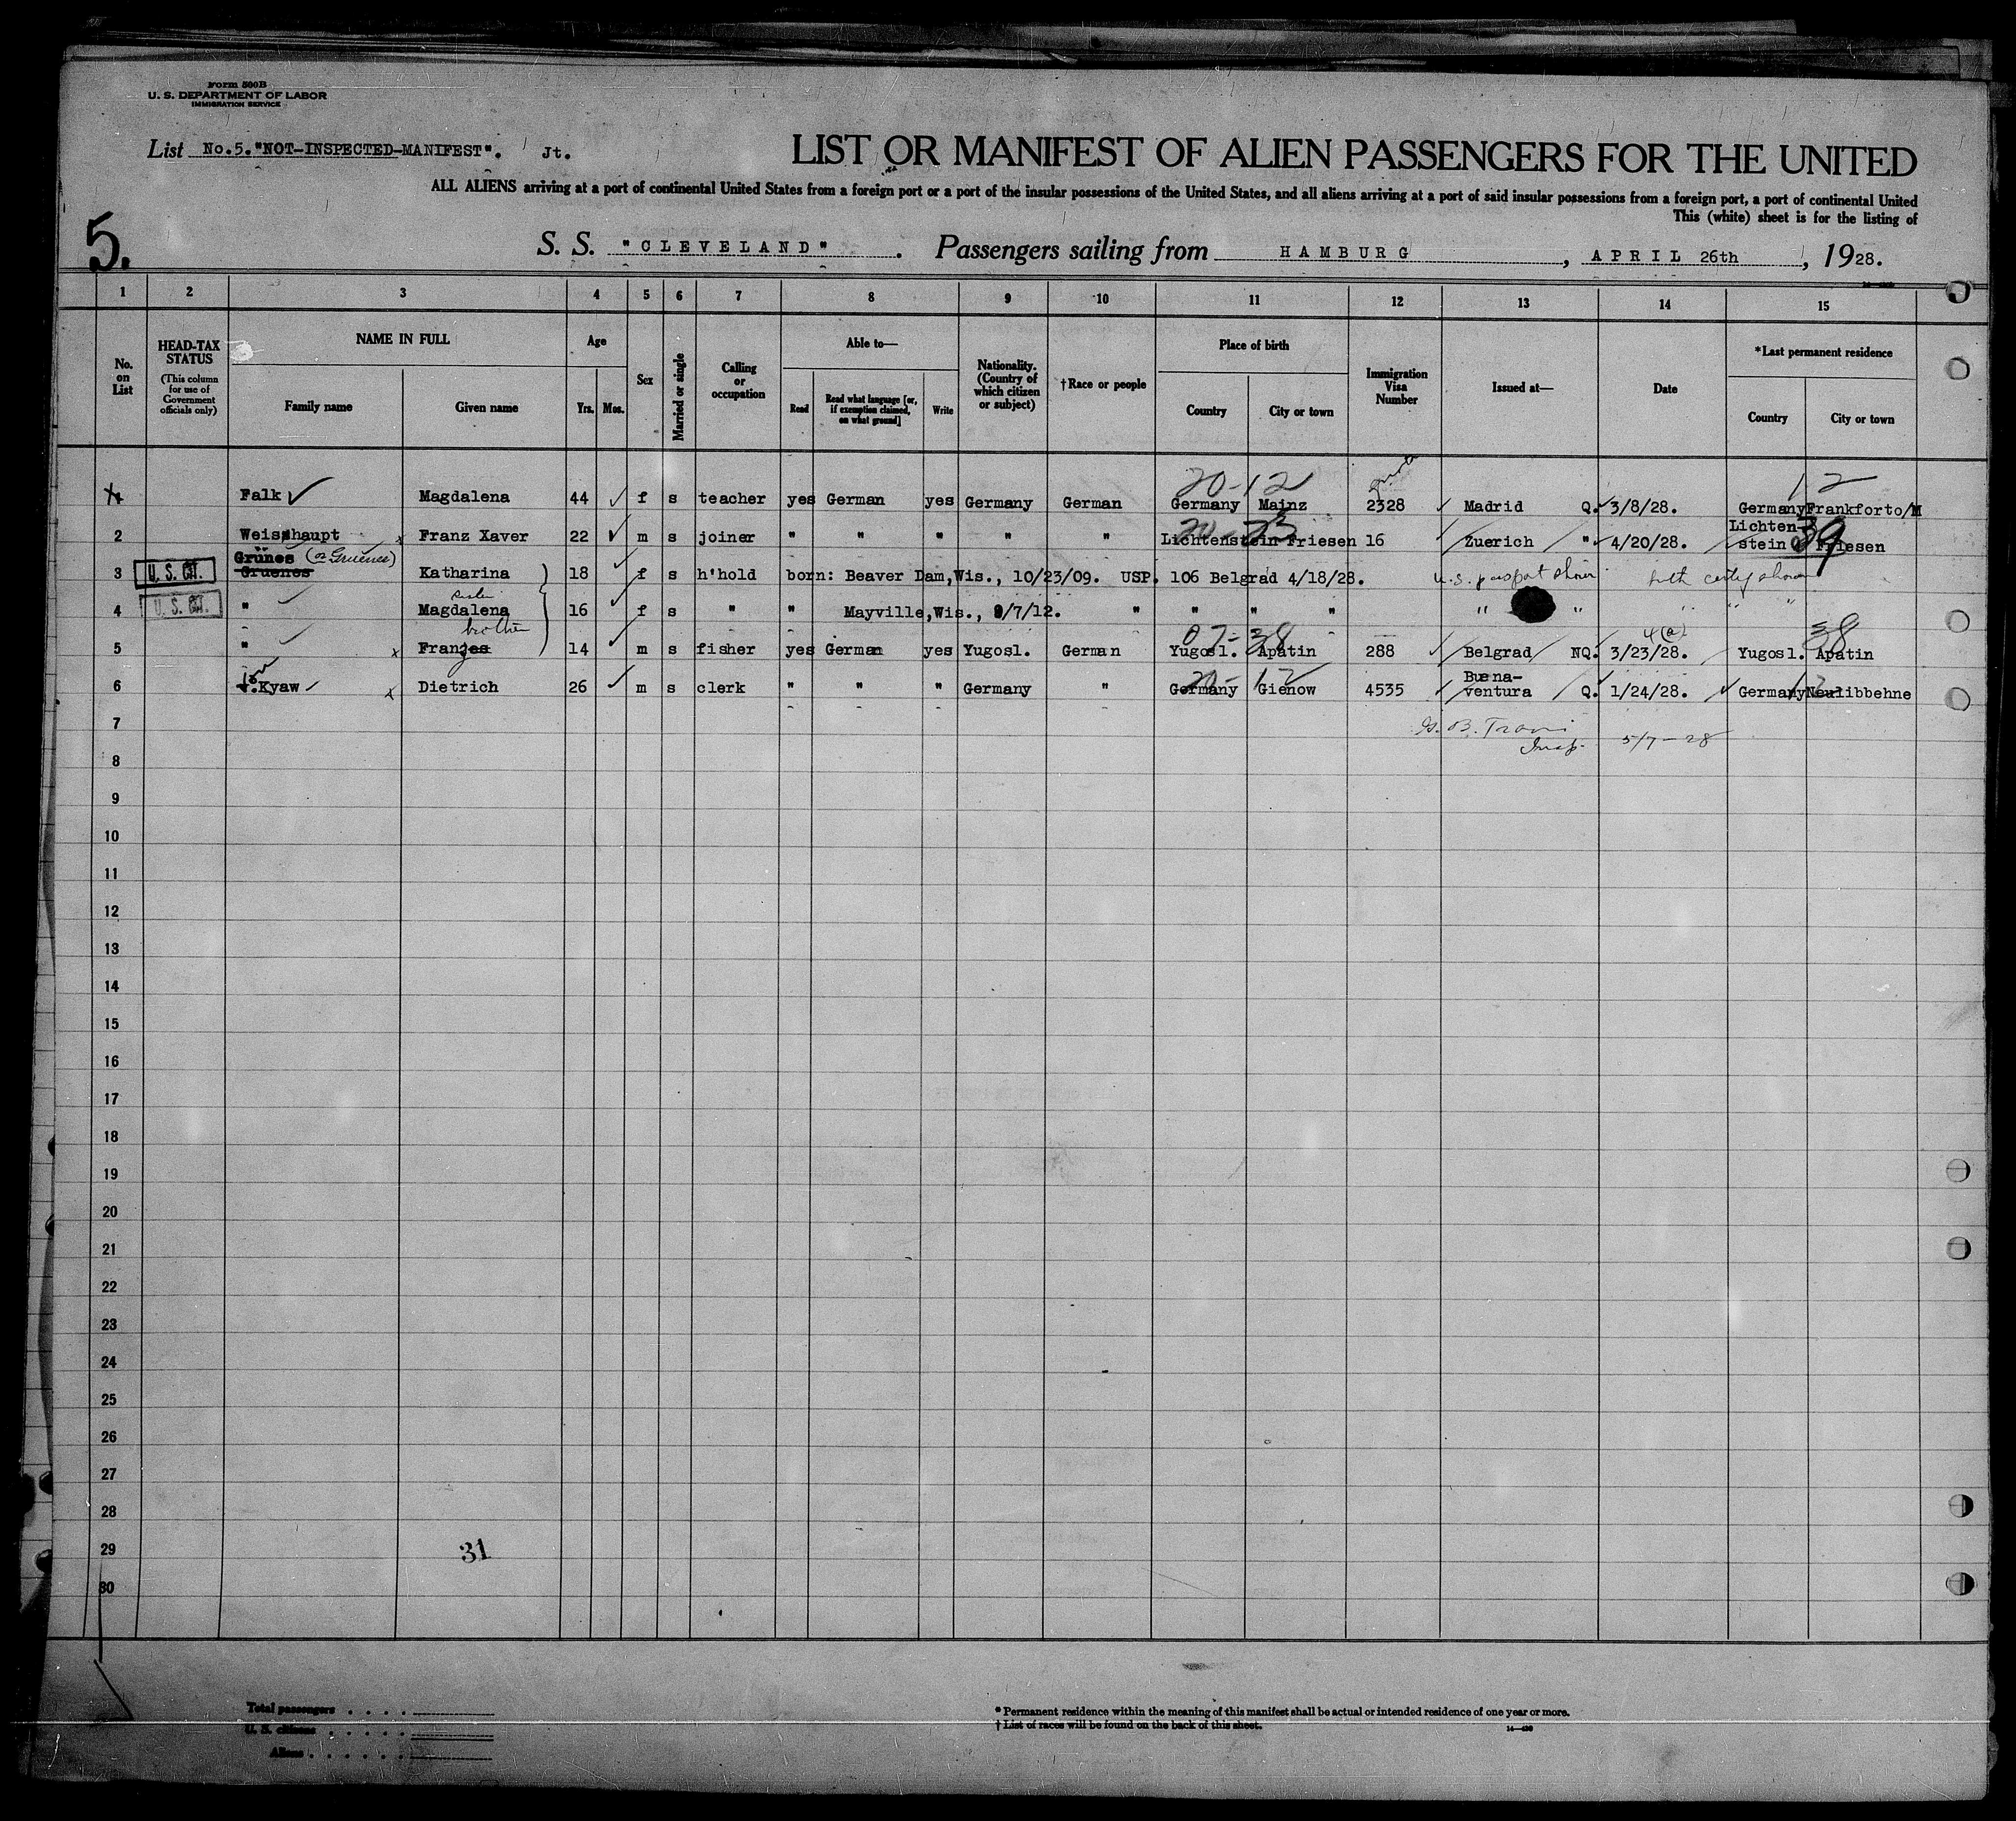 Form 500B
U. S. DEPARTMENT OF LABOR
IMMIGRATION SERVICE
List No.5."NOT-INSPECTED-MANIFEST". Jt.
LIST OR MANIFEST OF ALIEN PASSENGERS FOR THE UNITED
ALL ALIENS arriving at a port of continental United States from a foreign port or a port of the insular possessions of the United States, and all aliens arriving at a port of said insular possessions from a foreign port, a port of continental United
This (white) sheet is for the listing of
5.
S. S. "CLEVELAND". Passengers sailing from HAMBURG, APRIL 26th, 1928.
1 2 3 4 5 6 7 8 9 10 11 12 13 14 15
No. on List
HEAD-TAX STATUS
(This column for use of Government officials only)
NAME IN FULL
Family name
Given name
Age
Yrs. Mos.
Sex
Married or single
Calling or occupation
Able to—
Read
Read what language [or, if exemption claimed, on what ground]
Write
Nationality. (Country of which citizen or subject)
†Race or people
Place of birth
Country
City or town
Immigration Visa Number
Issued at—
Date
*Last permanent residence
Country
City or town
20-12 12
1 Falk Magdalena 44 f s teacher yes German yes Germany German Germany Mainz 2328 Madrid Q. 3/8/28. Germany Frankforto/M
20-23 39
2 Weisshaupt Franz Xaver 22 m s joiner " " " " " Lichtenstein Friesen 16 Zuerich " 4/20/28. Lichtenstein Friesen
Grünes (or Gruenes)
3 U. S. CIT. Gruenes Katharina 18 f s h'hold born: Beaver Dam,Wis., 10/23/09. USP. 106 Belgrad 4/18/28. U.S. passport shown birth certif shown
sister
4 U. S. CIT. " Magdalena 16 f s " " Mayville,Wis., 9/7/12. " " " " " " " " "
brother
07-38 4(a) 38
5 " Franjes 14 m s fisher yes German yes Yugosl. German Yugosl. Apatin 288 Belgrad NQ. 3/23/28. Yugosl. Apatin
von
20-12
6 v.Kyaw Dietrich 26 m s clerk " " " Germany " Germany Gienow 4535 Buenaventura Q. 1/24/28. Germany Neulibbehne
7
Insp. 5/7-28
8
9
10
11
12
13
14
15
16
17
18
19
20
21
22
23
24
25
26
27
28
29 31
30
Total passengers
U. S. citizens
Aliens
* Permanent residence within the meaning of this manifest shall be actual or intended residence of one year or more.
† List of races will be found on the back of this sheet.